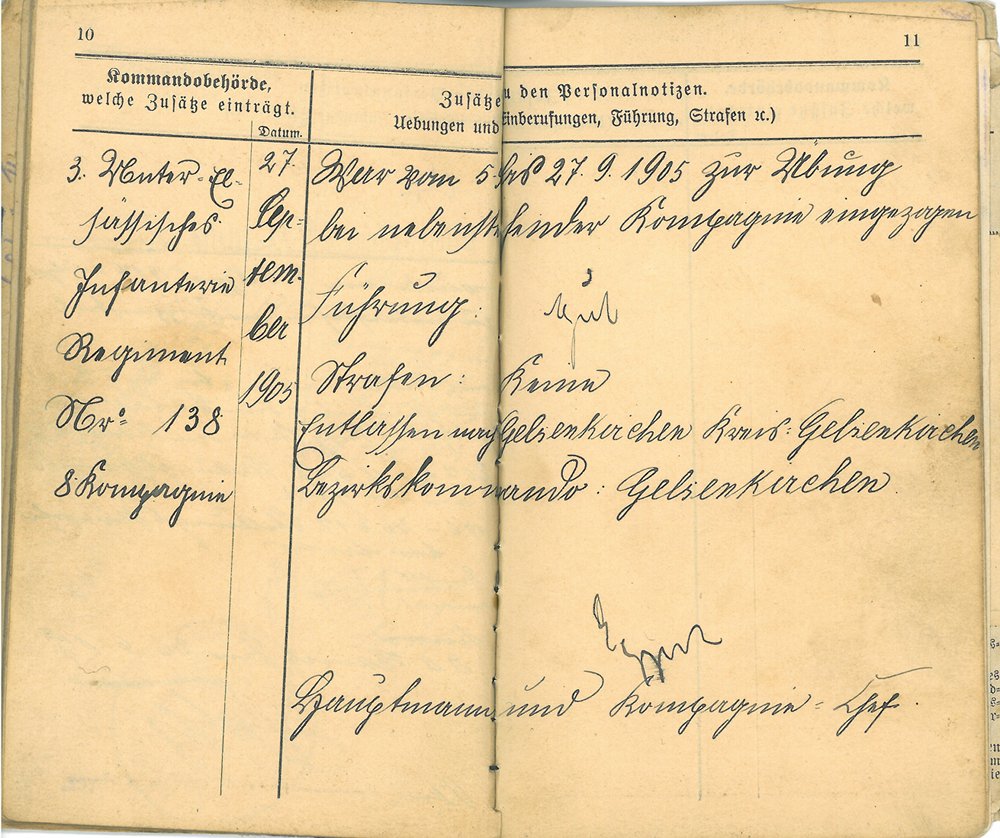 10
11
Kommandobehörde,
welche Zusätze einträgt.
Datum.
Zusätze zu den Personalnotizen.
Uebungen und Einberufungen, Führung, Strafen ꝛc.)
3. Unter-El-
sässisches
Infanterie
Regiment
Nro 138
8 Kompagnie
27.
Sep-
tem-
ber
1905
War vom 5. bis 27. 9. 1905 zur Übung
bei nebenstehender Kompagnie eingezogen
Führung: Gut
Strafen: Keine
Entlassen nach Gelsenkirchen Kreis: Gelsenkirchen
Bezirkskommando: Gelsenkirchen
Hauptmann und Kompagnie-Chef.